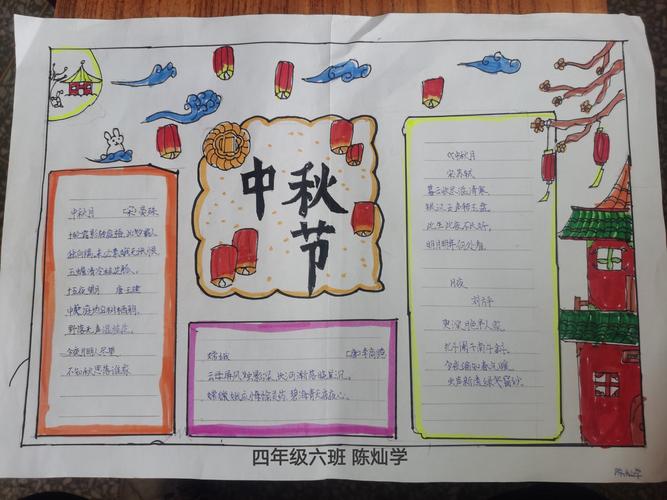 中秋节
中秋月 (宋)晏殊
十轮霜影转庭梧,此夕羁人
独向隅,未必素娥无怅恨,
玉蟾清冷桂花孤。
十五夜望 唐王建
中庭地白树栖鸦,
冷露无声湿桂花。
今夜月明人尽望
不知秋思落谁家
嫦娥 (唐)李商隐
云母屏风烛影深,长河渐落晓星沉。
嫦娥应悔偷灵药,碧海青天夜夜心。
《中秋月
宋苏轼
暮云收尽溢清寒,
银汉无声转玉盘。
此生此夜不长好,
明月明年何处看。
月夜
刘方平
更深月色半人家,
北斗阑干南斗斜。
今夜偏知春气暖,
虫声新透绿窗纱
四年级六班 陈灿学
陈灿学